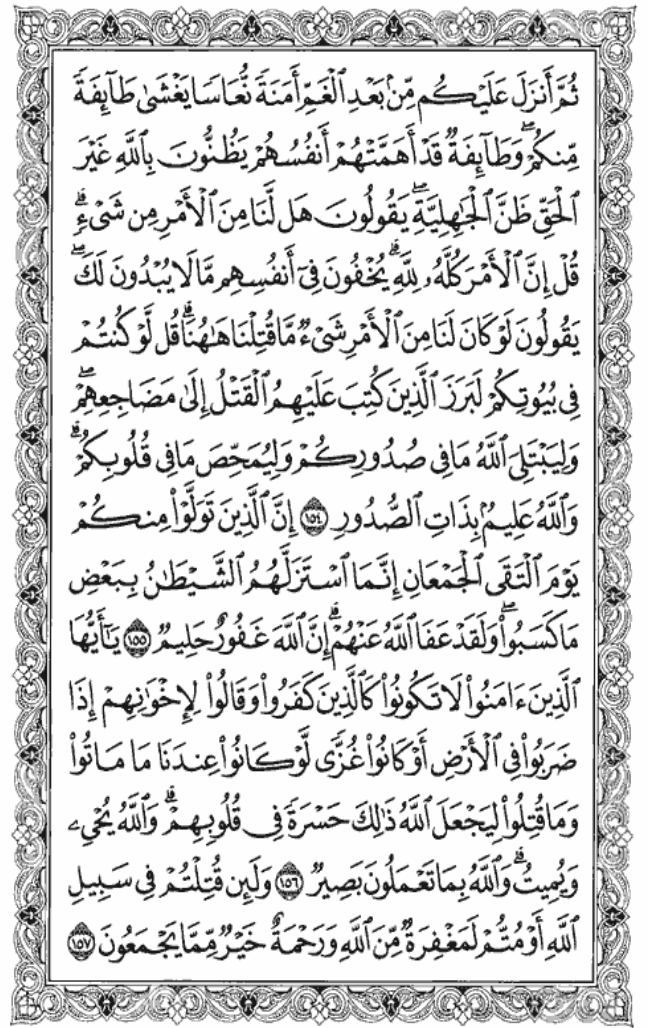 ثُمَّ أَنزَلَ عَلَيْكُم مِّنۢ بَعْدِ ٱلْغَمِّ أَمَنَةً نُّعَاسًا يَغْشَىٰ طَآئِفَةً
مِّنكُمْ ۖ وَطَآئِفَةٌ قَدْ أَهَمَّتْهُمْ أَنفُسُهُمْ يَظُنُّونَ بِٱللَّهِ غَيْرَ
ٱلْحَقِّ ظَنَّ ٱلْجَـٰهِلِيَّةِ ۖ يَقُولُونَ هَل لَّنَا مِنَ ٱلْأَمْرِ مِن شَىْءٍ ۗ
قُلْ إِنَّ ٱلْأَمْرَ كُلَّهُۥ لِلَّهِ ۗ يُخْفُونَ فِىٓ أَنفُسِهِم مَّا لَا يُبْدُونَ لَكَ ۖ
يَقُولُونَ لَوْ كَانَ لَنَا مِنَ ٱلْأَمْرِ شَىْءٌ مَّا قُتِلْنَا هَـٰهُنَا ۗ قُل لَّوْ كُنتُمْ
فِى بُيُوتِكُمْ لَبَرَزَ ٱلَّذِينَ كُتِبَ عَلَيْهِمُ ٱلْقَتْلُ إِلَىٰ مَضَاجِعِهِمْ ۖ
وَلِيَبْتَلِىَ ٱللَّهُ مَا فِى صُدُورِكُمْ وَلِيُمَحِّصَ مَا فِى قُلُوبِكُمْ ۗ
وَٱللَّهُ عَلِيمٌۢ بِذَاتِ ٱلصُّدُورِ ١٥٤ إِنَّ ٱلَّذِينَ تَوَلَّوْا۟ مِنكُمْ
يَوْمَ ٱلْتَقَى ٱلْجَمْعَانِ إِنَّمَا ٱسْتَزَلَّهُمُ ٱلشَّيْطَـٰنُ بِبَعْضِ
مَا كَسَبُوا۟ ۖ وَلَقَدْ عَفَا ٱللَّهُ عَنْهُمْ ۗ إِنَّ ٱللَّهَ غَفُورٌ حَلِيمٌ ١٥٥ يَـٰٓأَيُّهَا
ٱلَّذِينَ ءَامَنُوا۟ لَا تَكُونُوا۟ كَٱلَّذِينَ كَفَرُوا۟ وَقَالُوا۟ لِإِخْوَٰنِهِمْ إِذَا
ضَرَبُوا۟ فِى ٱلْأَرْضِ أَوْ كَانُوا۟ غُزًّى لَّوْ كَانُوا۟ عِندَنَا مَا مَاتُوا۟
وَمَا قُتِلُوا۟ لِيَجْعَلَ ٱللَّهُ ذَٰلِكَ حَسْرَةً فِى قُلُوبِهِمْ ۗ وَٱللَّهُ يُحْىِۦ
وَيُمِيتُ ۗ وَٱللَّهُ بِمَا تَعْمَلُونَ بَصِيرٌ ١٥٦ وَلَئِن قُتِلْتُمْ فِى سَبِيلِ
ٱللَّهِ أَوْ مُتُّمْ لَمَغْفِرَةٌ مِّنَ ٱللَّهِ وَرَحْمَةٌ خَيْرٌ مِّمَّا يَجْمَعُونَ ١٥٧